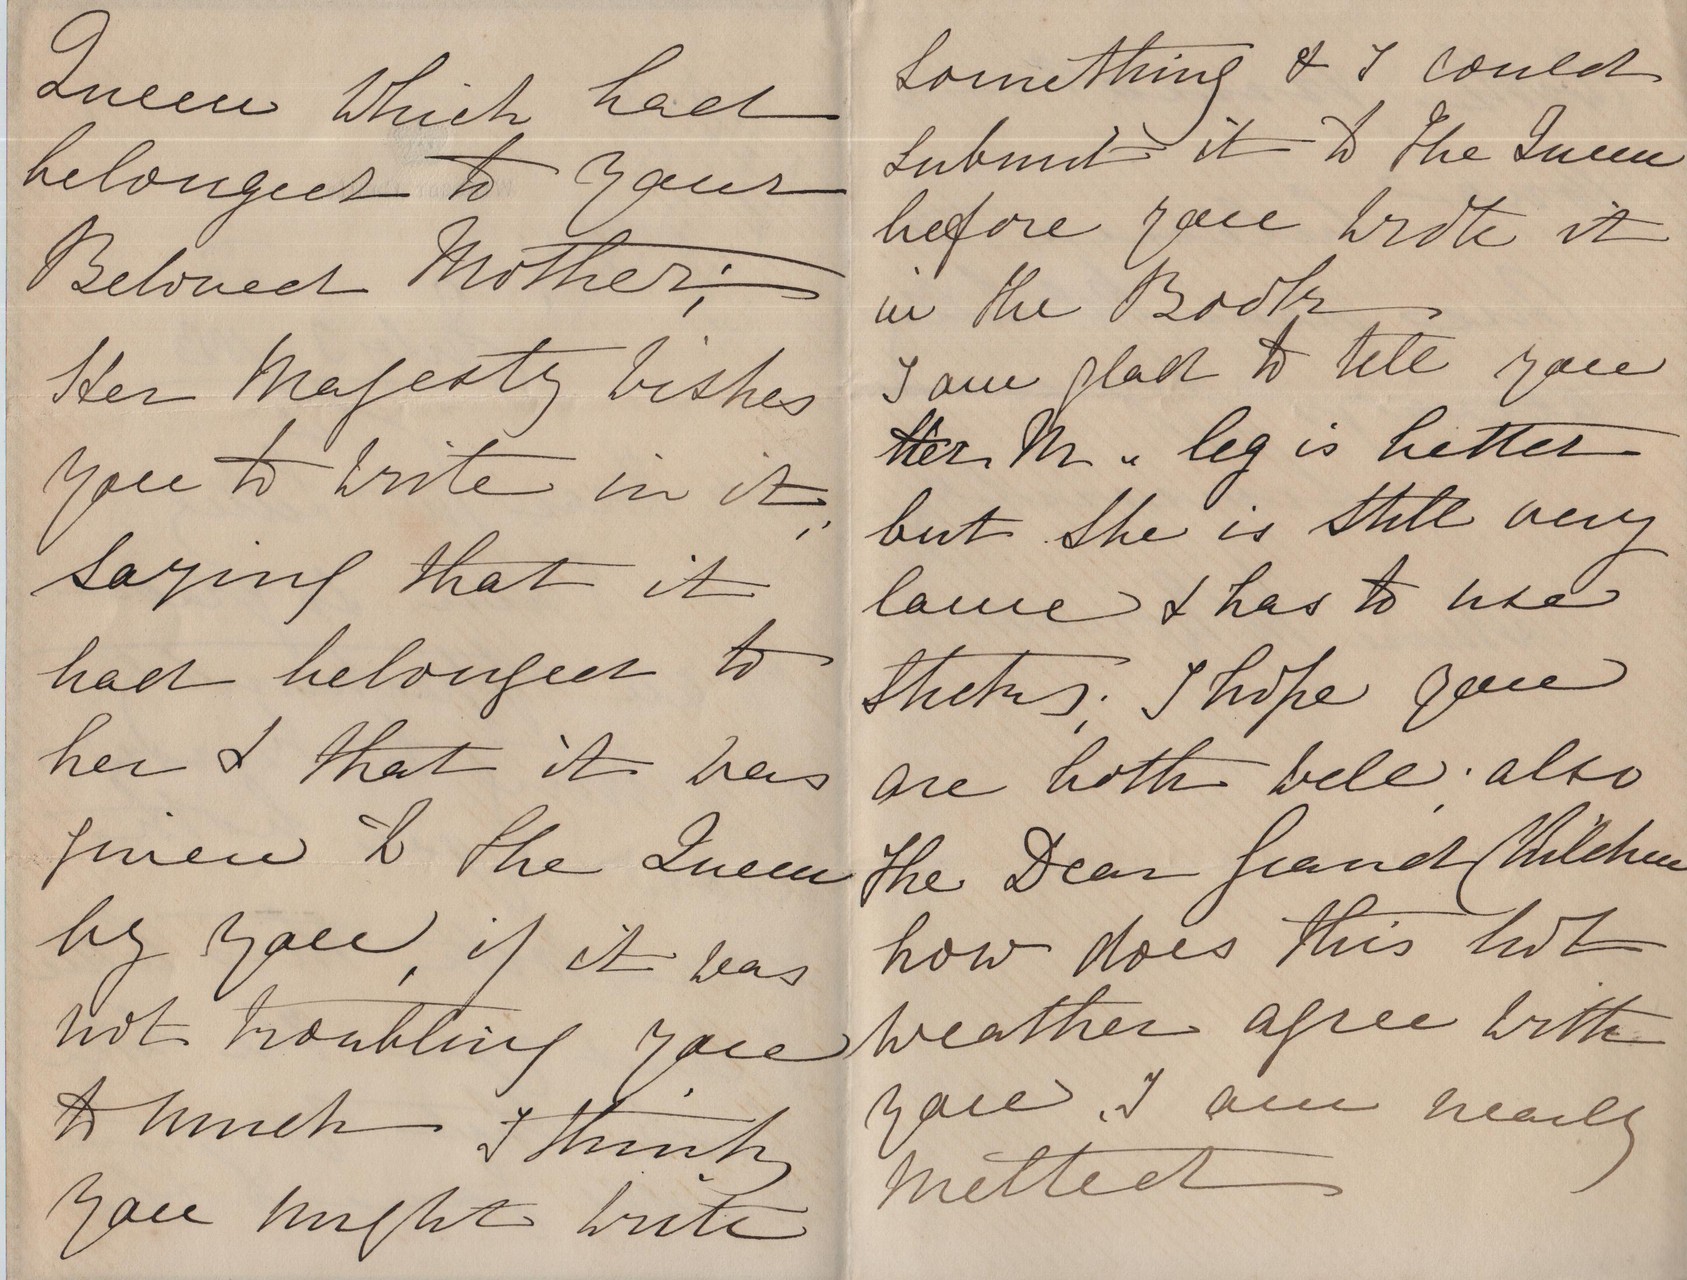 Queen which had
belonged to your
Beloved Mother;
Her Majesty wishes
you to write in it,,
saying that it
had belonged to
her & that it was
given to the Queen
by you, if it was
not troubling you
to much I think
you might write
something & I could
submit it to the Queen
before you wrote it
in the Book
I am glad to tell you
Her M.. leg is better
but she is still very
lame & has to use
sticks; I hope you
are both well; also
the Dear Grand Children
how does this hot
weather agree with
you, I am nearly
melted